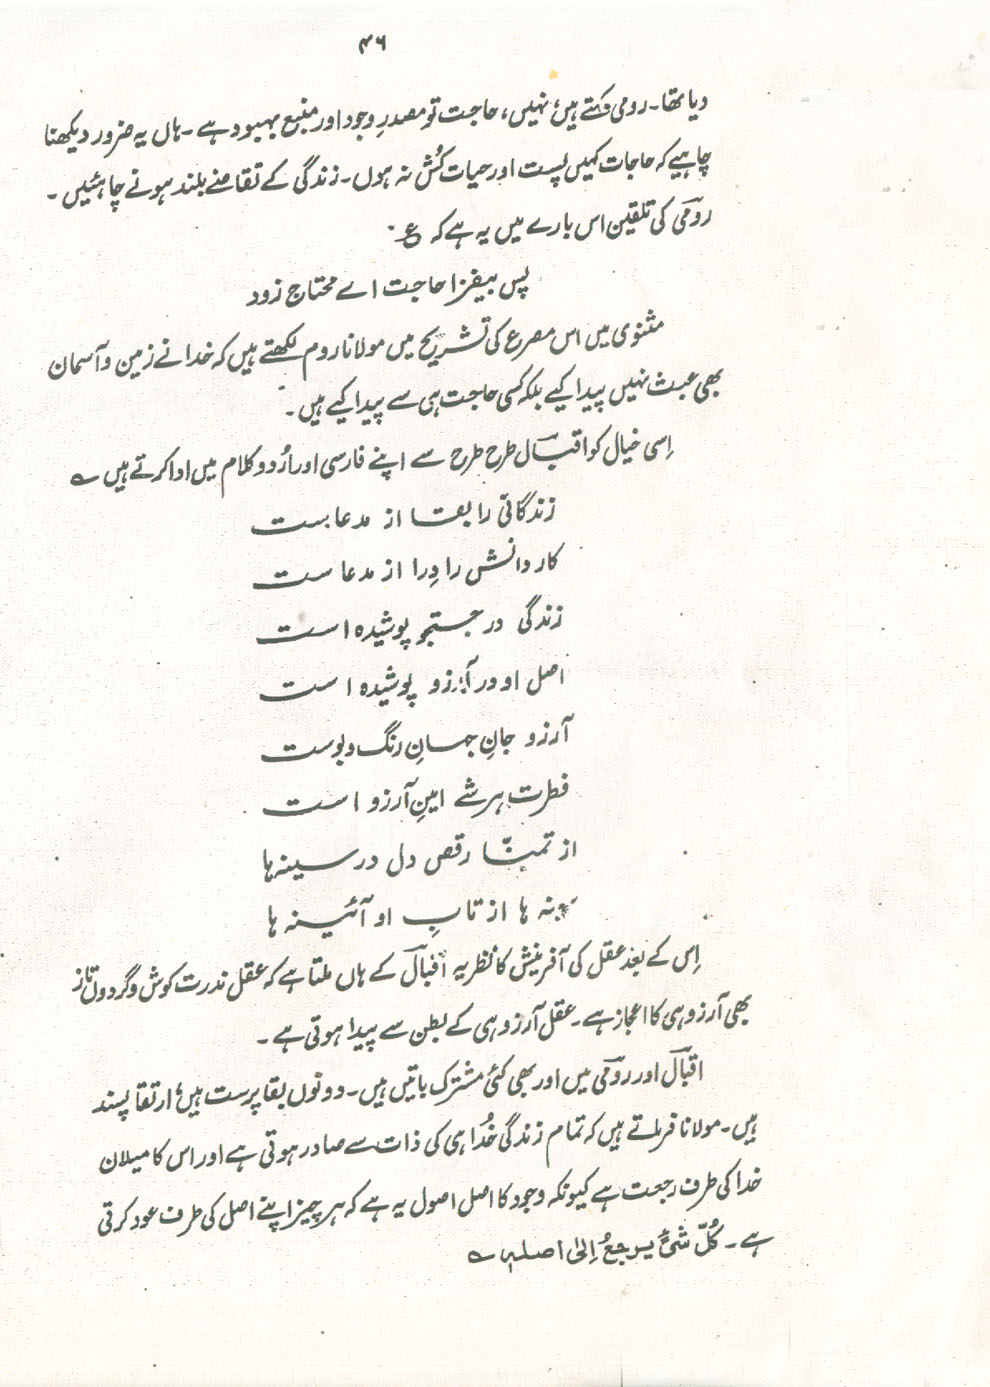 ۴۶
دیا تھا۔ رومی کہتے ہیں، نہیں، حاجت تو مصدرِ وجود اور منبعِ بہبود ہے۔ ہاں یہ ضرور دیکھنا
چاہیے کہ حاجات کہیں پست اور حیات کُش نہ ہوں۔ زندگی کے تقاضے بلند ہونے چاہئیں۔
رومی کی تلقین اس بارے میں یہ ہے کہ ع
پس بیفزا حاجت اے محتاج زود
مثنوی میں اس مصرع کی تشریح میں مولانا روم لکھتے ہیں کہ خدا نے زمین و آسمان
بھی عبث نہیں پیدا کیے بلکہ کسی حاجت ہی سے پیدا کیے ہیں۔
اِسی خیال کو اقبال طرح طرح سے اپنے فارسی اور اُردو کلام میں ادا کرتے ہیں ؎
زندگانی را بقا از مدعا ست
کاردانش را دِرا از مدعا ست
زندگی در جستجو پوشیدہ است
اصل او در آرزو پوشیدہ است
آرزو جانِ جہانِ رنگ و بوست
فطرت ہر شے امینِ آرزو است
از تمنّا رقص دل در سینہ ہا
سینہ ہا از تابِ او آئینہ ہا
اِس کے بعد عقل کی آفرینش کا نظریہ اقبال کے ہاں ملتا ہے کہ عقل ندرت کوش و گردوں تاز
بھی آرزو ہی کا اعجاز ہے۔ عقل آرزو ہی کے بطن سے پیدا ہوتی ہے۔
اقبال اور رومی میں اور بھی کئی مشترک باتیں ہیں۔ دونوں بقا پرست ہیں، ارتقا پسند
ہیں۔ مولانا فرماتے ہیں کہ تمام زندگی خُدا ہی کی ذات سے صادر ہوتی ہے اور اس کا میلان
خدا کی طرف رجعت ہے کیونکہ وجود کا اصل اصول یہ ہے کہ ہر چیز اپنے اصل کی طرف عود کرتی
ہے۔ کُلّ شیٔ یرجعُ اِلیٰ اصلہٖ ؎